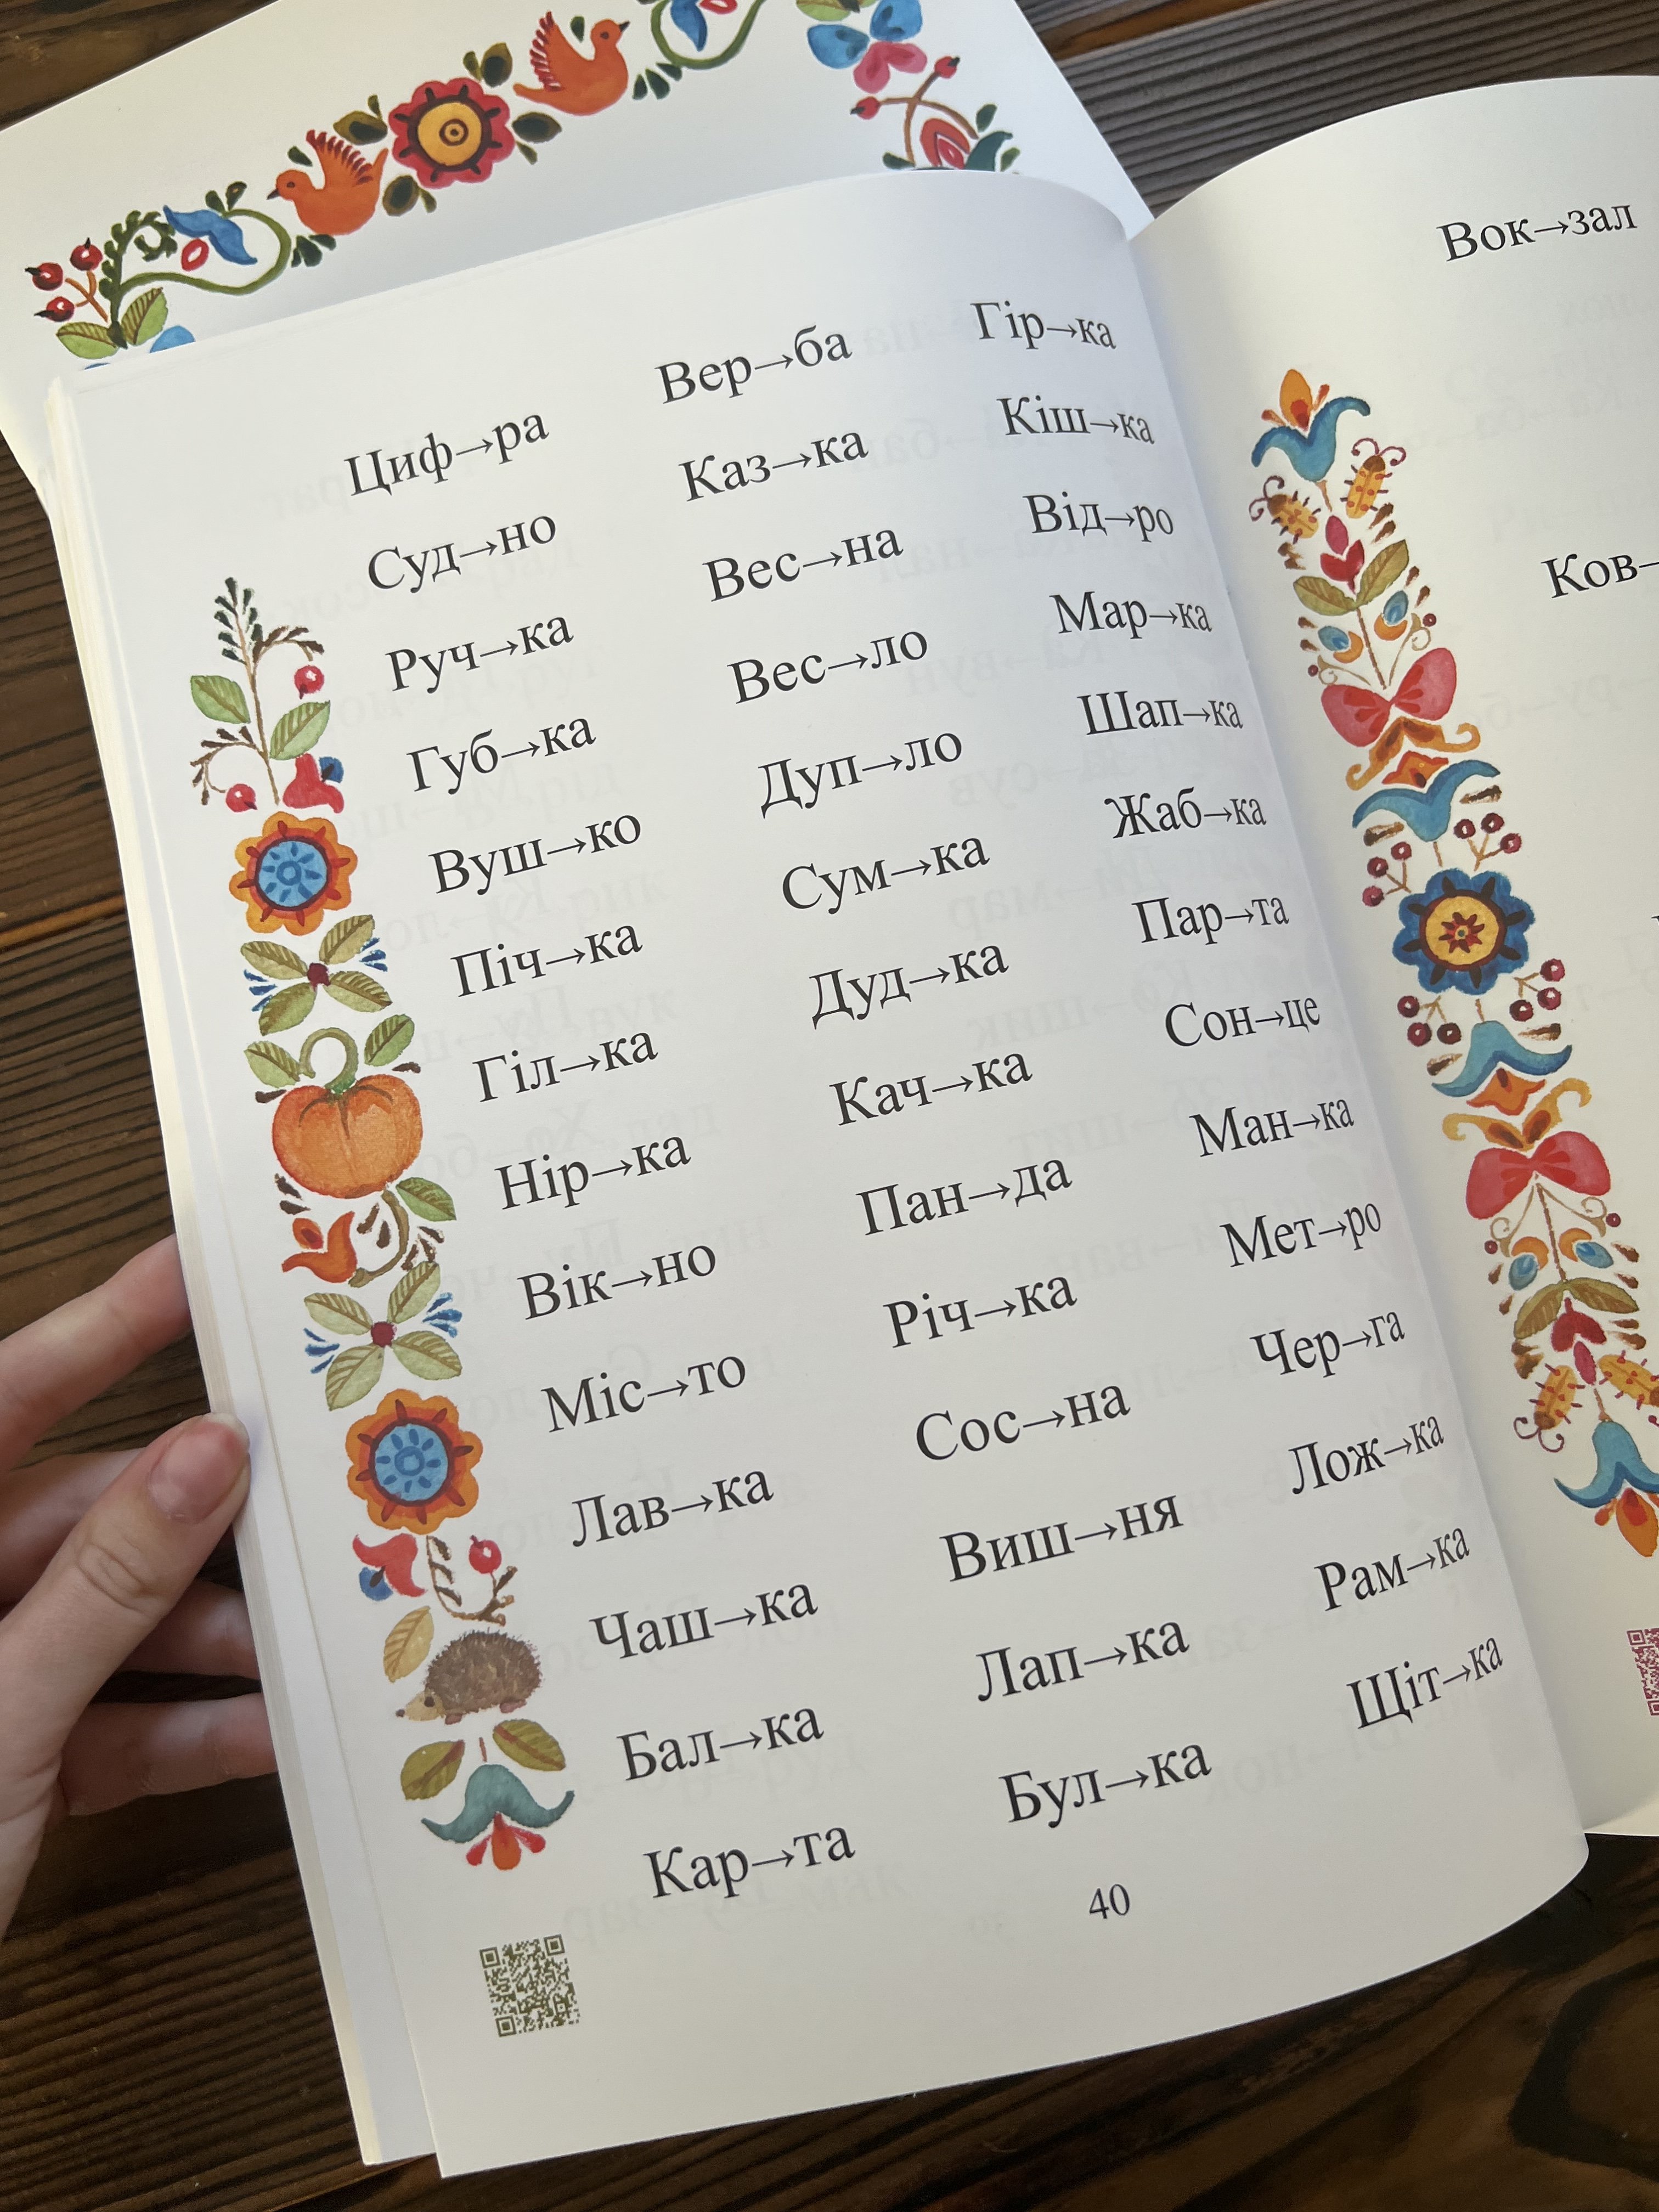 Циф→ра Вер→ба Гір→ка
Суд→но Каз→ка Кіш→ка
Руч→ка Вес→на Від→ро
Губ→ка Вес→ло Мар→ка
Вуш→ко Дуп→ло Шап→ка
Піч→ка Сум→ка Жаб→ка
Гіл→ка Дуд→ка Пар→та
Нір→ка Кач→ка Сон→це
Вік→но Пан→да Ман→ка
Міс→то Річ→ка Мет→ро
Лав→ка Сос→на Чер→га
Чаш→ка Виш→ня Лож→ка
Бал→ка Лап→ка Рам→ка
Кар→та Бул→ка Щіт→ка
40
Вок→зал
Ков→